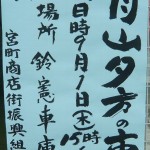 月山夕方の市
日時9月1日(木)15時
場所 鈴憲車庫
宮町商店街振興組